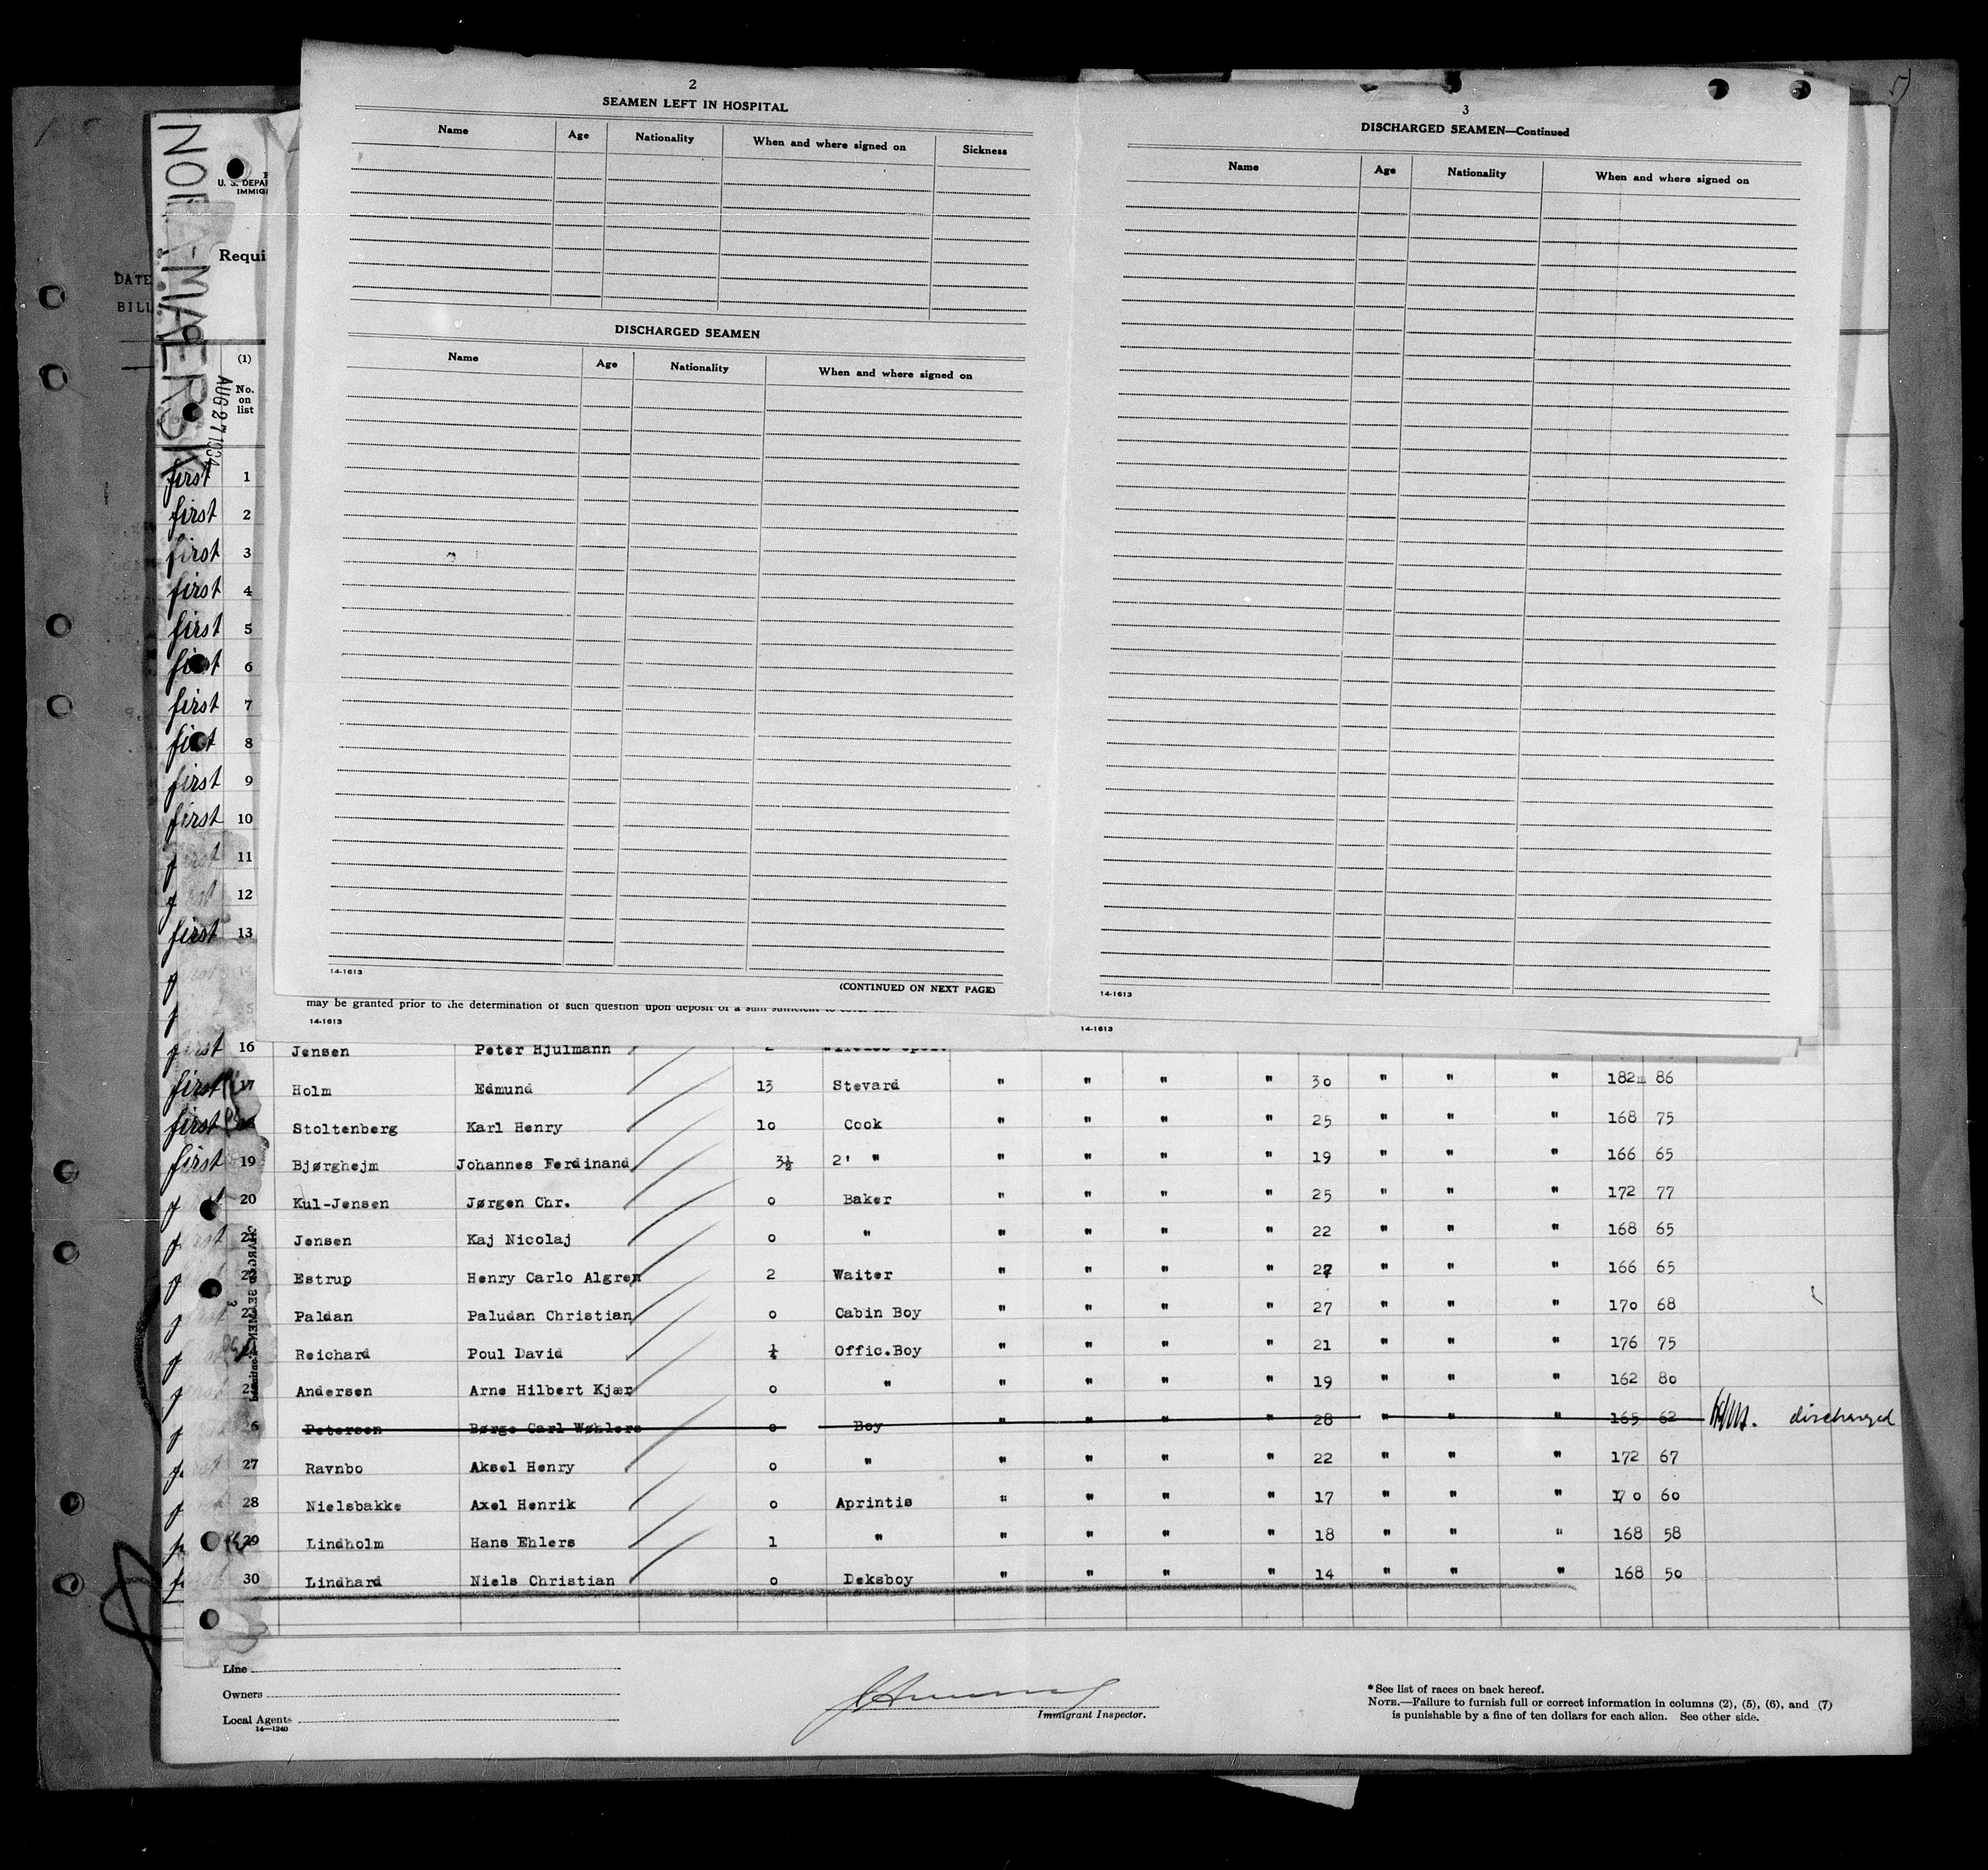 2
SEAMEN LEFT IN HOSPITAL
Name Age Nationality When and where signed on Sickness
DISCHARGED SEAMEN
Name Age Nationality When and where signed on
14-1613
(CONTINUED ON NEXT PAGE)
3
DISCHARGED SEAMEN—Continued
Name Age Nationality When and where signed on
14-1613
may be granted prior to the determination of such question upon deposit of a sum sufficient to cover
14-1613
14-1613
MAERSK
AUG 27 1934
U. S. DEPA
IMMIG
Requi
DATE
BILL
(1)
No.
on
list
first 1
first 2
first 3
first 4
first 5
first 6
first 7
first 8
first 9
first 10
first 11
12
first 13
first 16 Jensen Peter Hjulmann
first 17 Holm Edmund 13 Stevard " " " " 30 " " " 182 86
first Stoltenberg Karl Henry 10 Cook " " " " 25 " " " 168 75
first 19 Bjørghejm Johannes Ferdinand 3½ 2' " " " " " 19 " " " 166 65
20 Kul-Jensen Jørgen Chr. 0 Baker " " " " 25 " " " 172 77
Jensen Kaj Nicolaj 0 " " " " " 22 " " " 168 65
Estrup Henry Carlo Algren 2 Waiter " " " " " " " 166 65
Paldan Paludan Christian 0 Cabin Boy " " " " 27 " " " 170 68
Reichard Poul David Offic.Boy " " " " 21 " " " 176 75
25 Andersen Arne Hilbert Kjær 0 " " " " " 19 " " " 162 80
Petersen Børge Carl Wøhlers 0 Boy " " " " 28 " " " 165 62 discharged
27 Ravnbo Aksel Henry 0 " " " " " 22 " " " 172 67
28 Nielsbakke Axel Henrik 0 Aprintis " " " " 17 " " " 170 60
29 Lindholm Hans Ehlers 1 " " " " " 18 " " " 168 58
30 Lindhard Niels Christian 0 Deksboy " " " " 14 " " " 168 50
Line
Owners
Local Agents
14—1240
Immigrant Inspector.
*See list of races on back hereof.
NOTE.—Failure to furnish full or correct information in columns (2), (5), (6), and (7)
is punishable by a fine of ten dollars for each alien. See other side.